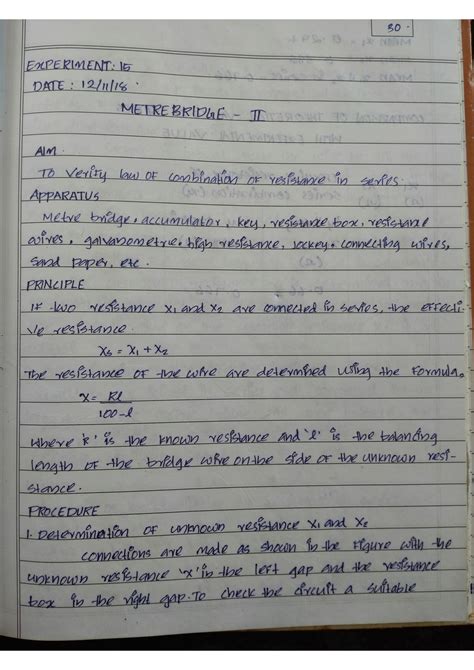 30
EXPERIMENT: 15
DATE : 12/11/18
METREBRIDGE - II
AIM
To verify law of combination of resistance in series.
APPARATUS
Metre bridge, accumulator, key, resistance box, resistance
wires, galvanometre, high resistance, jockey, connecting wires,
sand paper, etc.
PRINCIPLE
If two resistance X1 and X2 are connected in series, the effecti-
ve resistance.
Xs = X1 + X2
The resistance of the wire are determined using the formula,
X = Rl
100-l
where 'R' is the known resistance and 'l' is the balancing
length of the bridge wire on the side of the unknown resi-
stance.
PROCEDURE
1. Determination of unknown resistance X1 and X2
connections are made as shown in the figure with the
unknown resistance 'X' in the left gap and the resistance
box in the right gap. To check the circuit a suitable